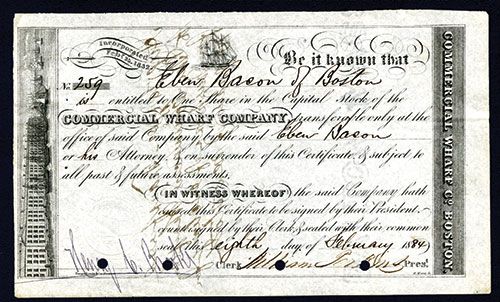 Incorporated
Feby. 15, 1832.
Be it known that
No. 259
Eben Bacon of Boston
is entitled to One Share in the Capital Stock of the
COMMERCIAL WHARF COMPANY, transferable only at the
office of said Company, by the said Eben Bacon
or his Attorney, on surrender of this Certificate & subject to
all past & future assessments.
IN WITNESS WHEREOF, the said Company hath
caused this Certificate to be signed by their President
countersigned by their Clerk, & sealed with their common
seal this eighth day of February 1884
Clerk
William Pres't.
COMMERCIAL WHARF Co. BOSTON.